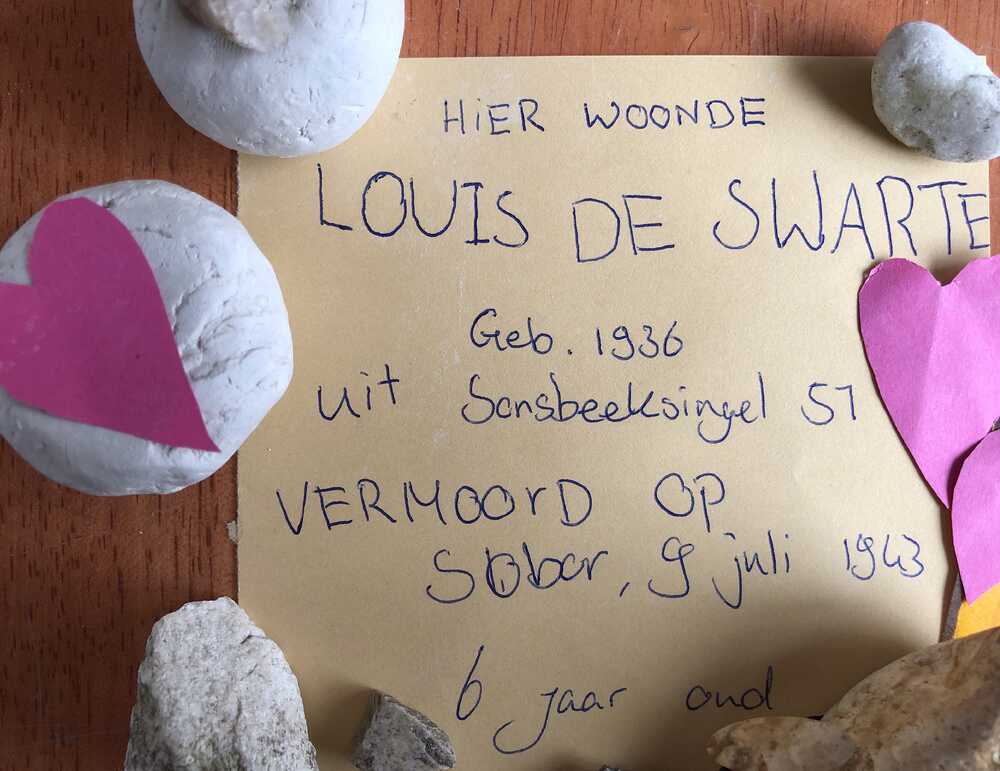 HIER WOONDE
LOUIS DE SWARTE
Geb. 1936
uit Sonsbeeksingel 51
VERMOORD OP
Sobor, 9 juli 1943
6 jaar oud